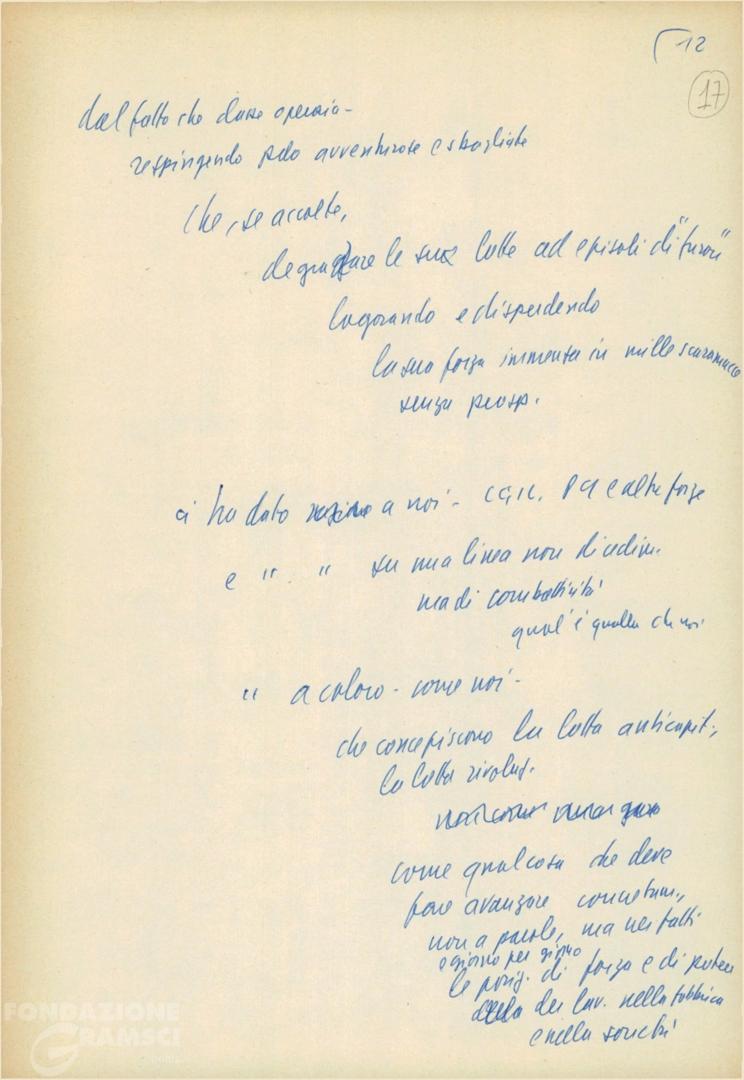 12
17
dal fatto che classe operaia -
respingendo parole avventurose e sbagliate
che, se accolte,
degradare le sue lotte ad episodi di "furori"
logorando e disperdendo
la sua forza immensa in mille scaramucce
senza prosp.
ci ha dato ragione a noi - CGIL, PCI e altre forze
e " " su una linea non di cedim.
ma di combattività
qual'è quella che noi
" a coloro - come noi -
che concepiscono la lotta anticapit.,
la lotta rivoluz.
non come
come qualcosa che deve
fare avanzare concretam.,
non a parole, ma nei fatti
e giorno per giorno
le posiz. di forza e di potere
della dei lav. nella fabbrica
e nella società
FONDAZIONE
GRAMSCI